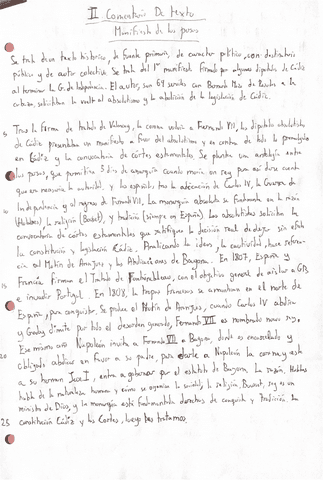 II Comentario De texto
Manifiesto de los persas
Se trata de un texto histórico, de fuente primaria, de caracter político, con destinatario
público y de autor colectivo. Se trata del 1er manifiesto firmado por algunos diputados de Cádiz
al terminar la G. de Independencia. El autor, son 69 siendo con Bernardo Mozo de Rosales a la
cabeza, solicitaban la vuelta al absolutismo y la abolición de la legislación de Cádiz.
5 Tras la firma de tratado de Valençay, la corona volvió a Fernando VII, los diputados absolutistas
de Cádiz presentaban un manifiesto a favor del absolutismo y en contra de todo lo promulgado
en Cádiz y la convocatoria de cortes estamentales. Se plantea una analogía entre
los persas, que permitían 5 días de anarquía cuando moría un rey para así darse cuenta
que era necesaria la autoridad, y los españoles, tras la abdicación de Carlos IV, la Guerra de
Independencia y el regreso de Fernando VII. La monarquía absoluta se fundamenta en la razón
(Hobbes), la religión (Bossuet), y tradición (siempre en España). Los absolutistas solicitan la
convocatoria de cortes estamentales que ratifiquen la decisión real de dejar sin efecto
la constitución y legislación Cádiz. Analizando las ideas, la cautividad, hace referen-
15 cia al Motín de Aranjuez y las Abdicaciones de Bayona. En 1807, España y
Francia firman el Tratado de Fontainebleau, con el objetivo general de aislar a GB
e invadir Portugal. En 1808, las tropas francesas se amontonan en el norte de
España, para conquistar. Se produce el Motín de Aranjuez, cuando Carlos IV abdica
y Godoy dimite por todo el desorden generado, Fernando VII es nombrado nuevo rey.
Ese mismo año Napoleón invita a Fernando VII a Bayona, donde es encarcelado y
20 obligado abdica en favor a su padre, para darle a Napoleón la corona y este
a su hermano José I, entra a gobernar por el estatuto de Bayona. La razón, Hobbes
habla de la naturaleza humana y cómo se organiza la sociedad, la religión, Bossuet, rey es un
ministro de Dios, y la monarquía está fundamentada derechos de conquista y tradición. La
25 constitución Cádiz y las Cortes, luego las tratamos.